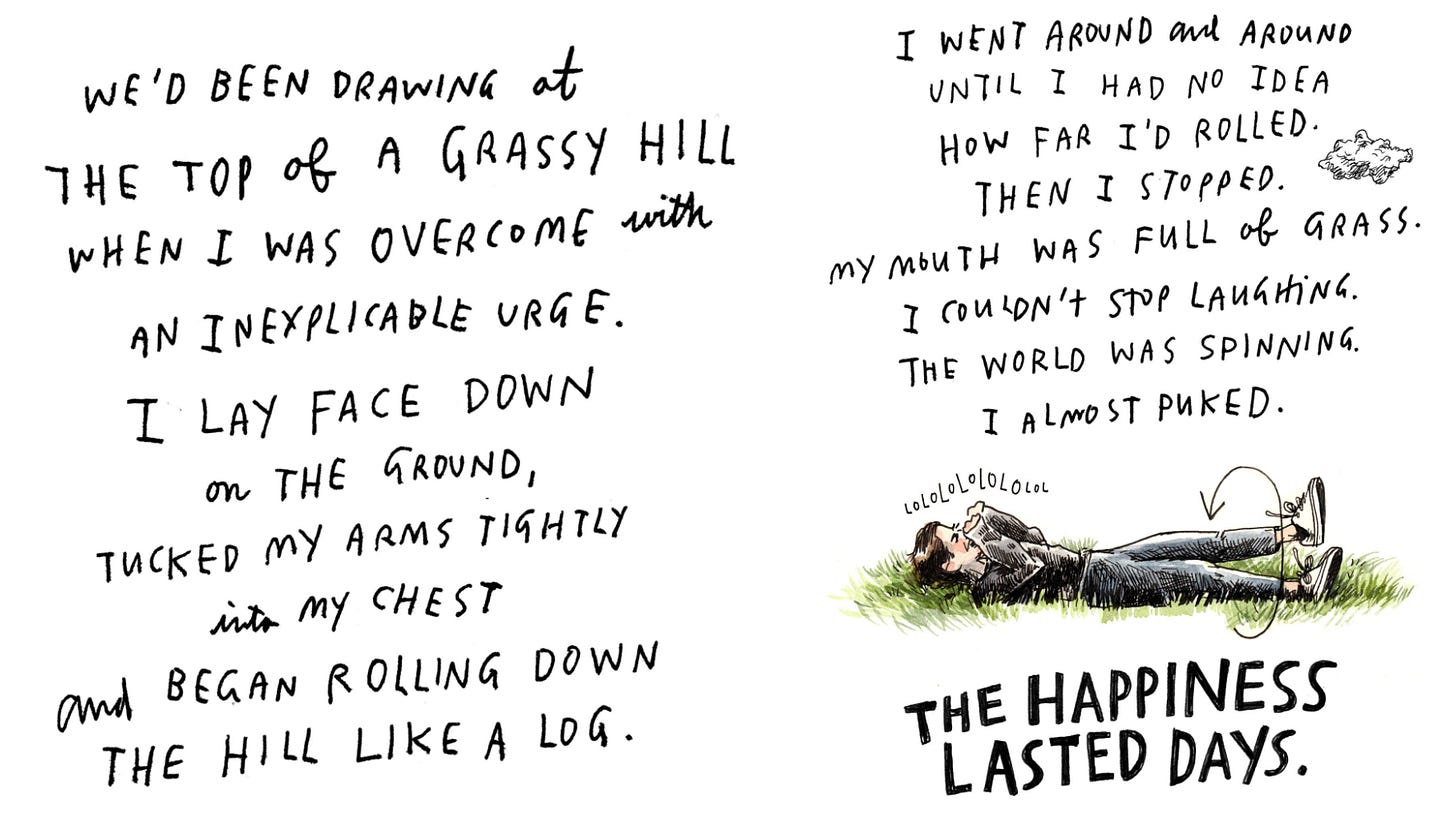 WE'D BEEN DRAWING at
THE TOP of A GRASSY HILL
WHEN I WAS OVERCOME with
AN INEXPLICABLE URGE.
I LAY FACE DOWN
on THE GROUND,
TUCKED MY ARMS TIGHTLY
into MY CHEST
and BEGAN ROLLING DOWN
THE HILL LIKE A LOG.
I WENT AROUND and AROUND
UNTIL I HAD NO IDEA
HOW FAR I'D ROLLED.
THEN I STOPPED.
MY MOUTH WAS FULL of GRASS.
I COULDN'T STOP LAUGHING.
THE WORLD WAS SPINNING.
I ALMOST PUKED.
LOLOLOLOLOLOLOL
THE HAPPINESS
LASTED DAYS.